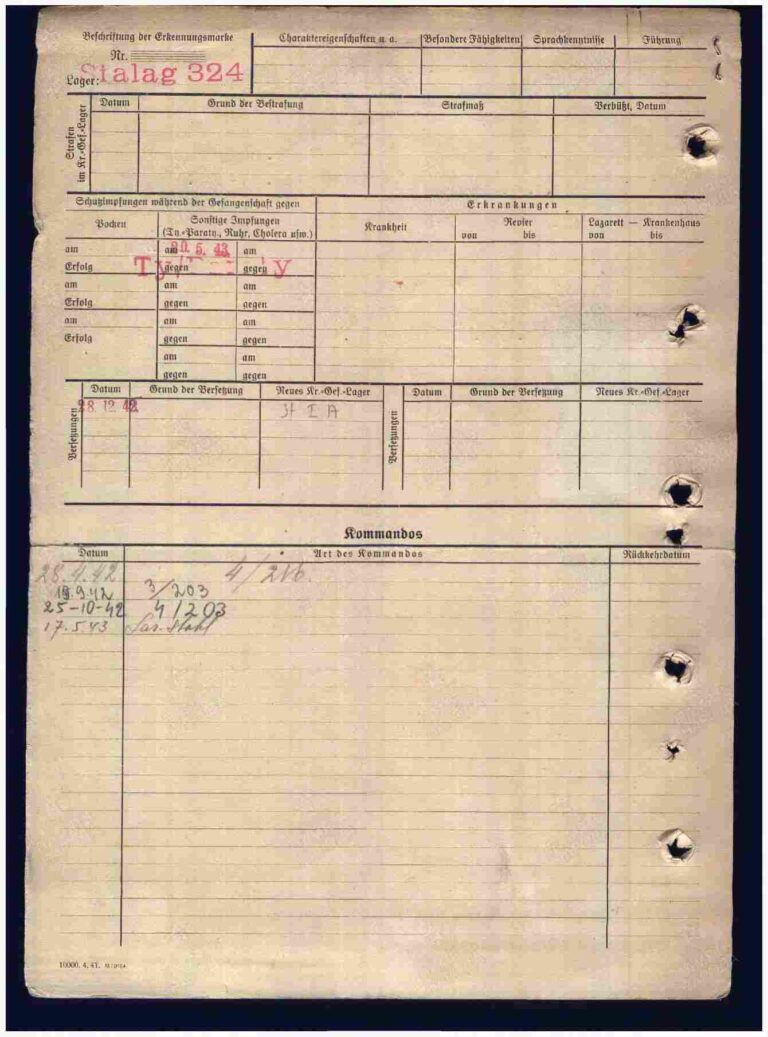 Beschriftung der Erkennungsmarke
Nr.
Lager: Stalag 324
Charaktereigenschaften u. a.
Besondere Fähigkeiten
Sprachkenntnisse
Führung
Strafen im Kr.-Gef.-Lager
Datum
Grund der Bestrafung
Strafmaß
Verbüßt, Datum
Schutzimpfungen während der Gefangenschaft gegen
Erkrankungen
Pocken
Sonstige Impfungen
(Ty.-Paraty., Ruhr, Cholera usw.)
Krankheit
Revier
von bis
Lazarett — Krankenhaus
von bis
am am 20. 5. 43 am
Erfolg gegen gegen
am am am
Erfolg gegen gegen
am am am
Erfolg gegen gegen
am am
gegen gegen
Versetzungen
Datum Grund der Versetzung Neues Kr.-Gef.-Lager
28 12 42
I A
Versetzungen
Datum Grund der Versetzung Neues Kr.-Gef.-Lager
Kommandos
Datum Art des Kommandos Rückkehrdatum
28.4.42. 4/216.
19.9.42 3/203
25-10-42 4/203
17.5.43
10000. 4. 41.